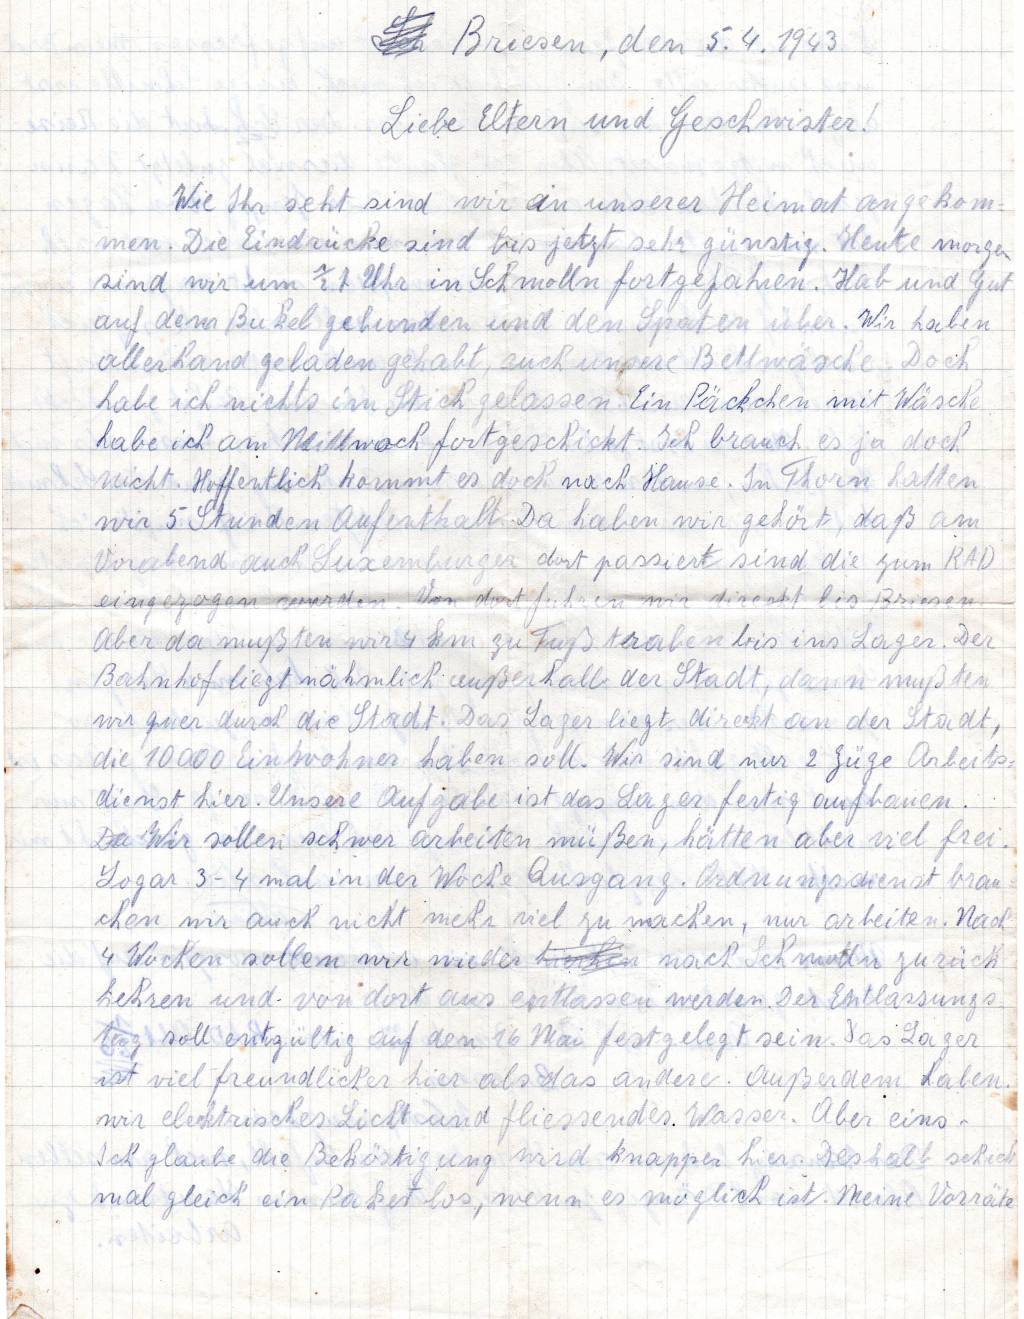 Briesen, den 5.4.1943
Liebe Eltern und Geschwister!
Wie Ihr seht sind wir in unserer Heimat angekom-
men. Die Eindrücke sind bis jetzt sehr günstig. Heute morgen
sind wir um 1/2 1 Uhr in Schmolln fortgefahren. Hab und Gut
auf dem Bukel gebunden und den Spaten über. Wir haben
allerhand geladen gehabt, auch unsere Bettwäsche. Doch
habe ich nichts im Stich gelassen. Ein Päckchen mit Wäsche
habe ich am Mittwoch fortgeschickt. Ich brauch es ja doch
nicht. Hoffentlich kommt es doch nach Hause. In Thorn hatten
wir 5 Stunden Aufenthalt. Da haben wir gehört, daß am
Vorabend auch Luxemburger dort passiert sind die zum RAD
eingezogen wurden. Von dort fuhren wir direkt bis Briesen
Aber da mußten wir 4 km zu Fuß traben bis ins Lager. Der
Bahnhof liegt nähmlich außerhalb der Stadt, dann mußten
wir quer durch die Stadt. Das Lager liegt direkt an der Stadt,
die 10000 Einwohner haben soll. Wir sind nur 2 Züge Arbeits-
dienst hier. Unsere Aufgabe ist das Lager fertig aufbauen.
Da Wir sollen schwer arbeiten müßen, hätten aber viel frei.
Sogar 3-4 mal in der Woche Ausgang. Ordnungsdienst brau-
chen wir auch nicht mehr viel zu machen, nur arbeiten. Nach
4 Wochen sollen wir wieder nach Schmolln zurück
kehren und von dort aus entlassen werden. Der Entlassungs
tag soll entgültig auf den 16 Mai festgelegt sein. Das Lager
ist viel freundlicher hier als das andere. Außerdem haben
wir elecktrisches Licht und fliessendes Wasser. Aber eins.
Ich glaube, die Beköstigung wird knapper hier. Deshalb schickt
mal gleich ein Paket los, wenn es möglich ist. Meine Vorräte